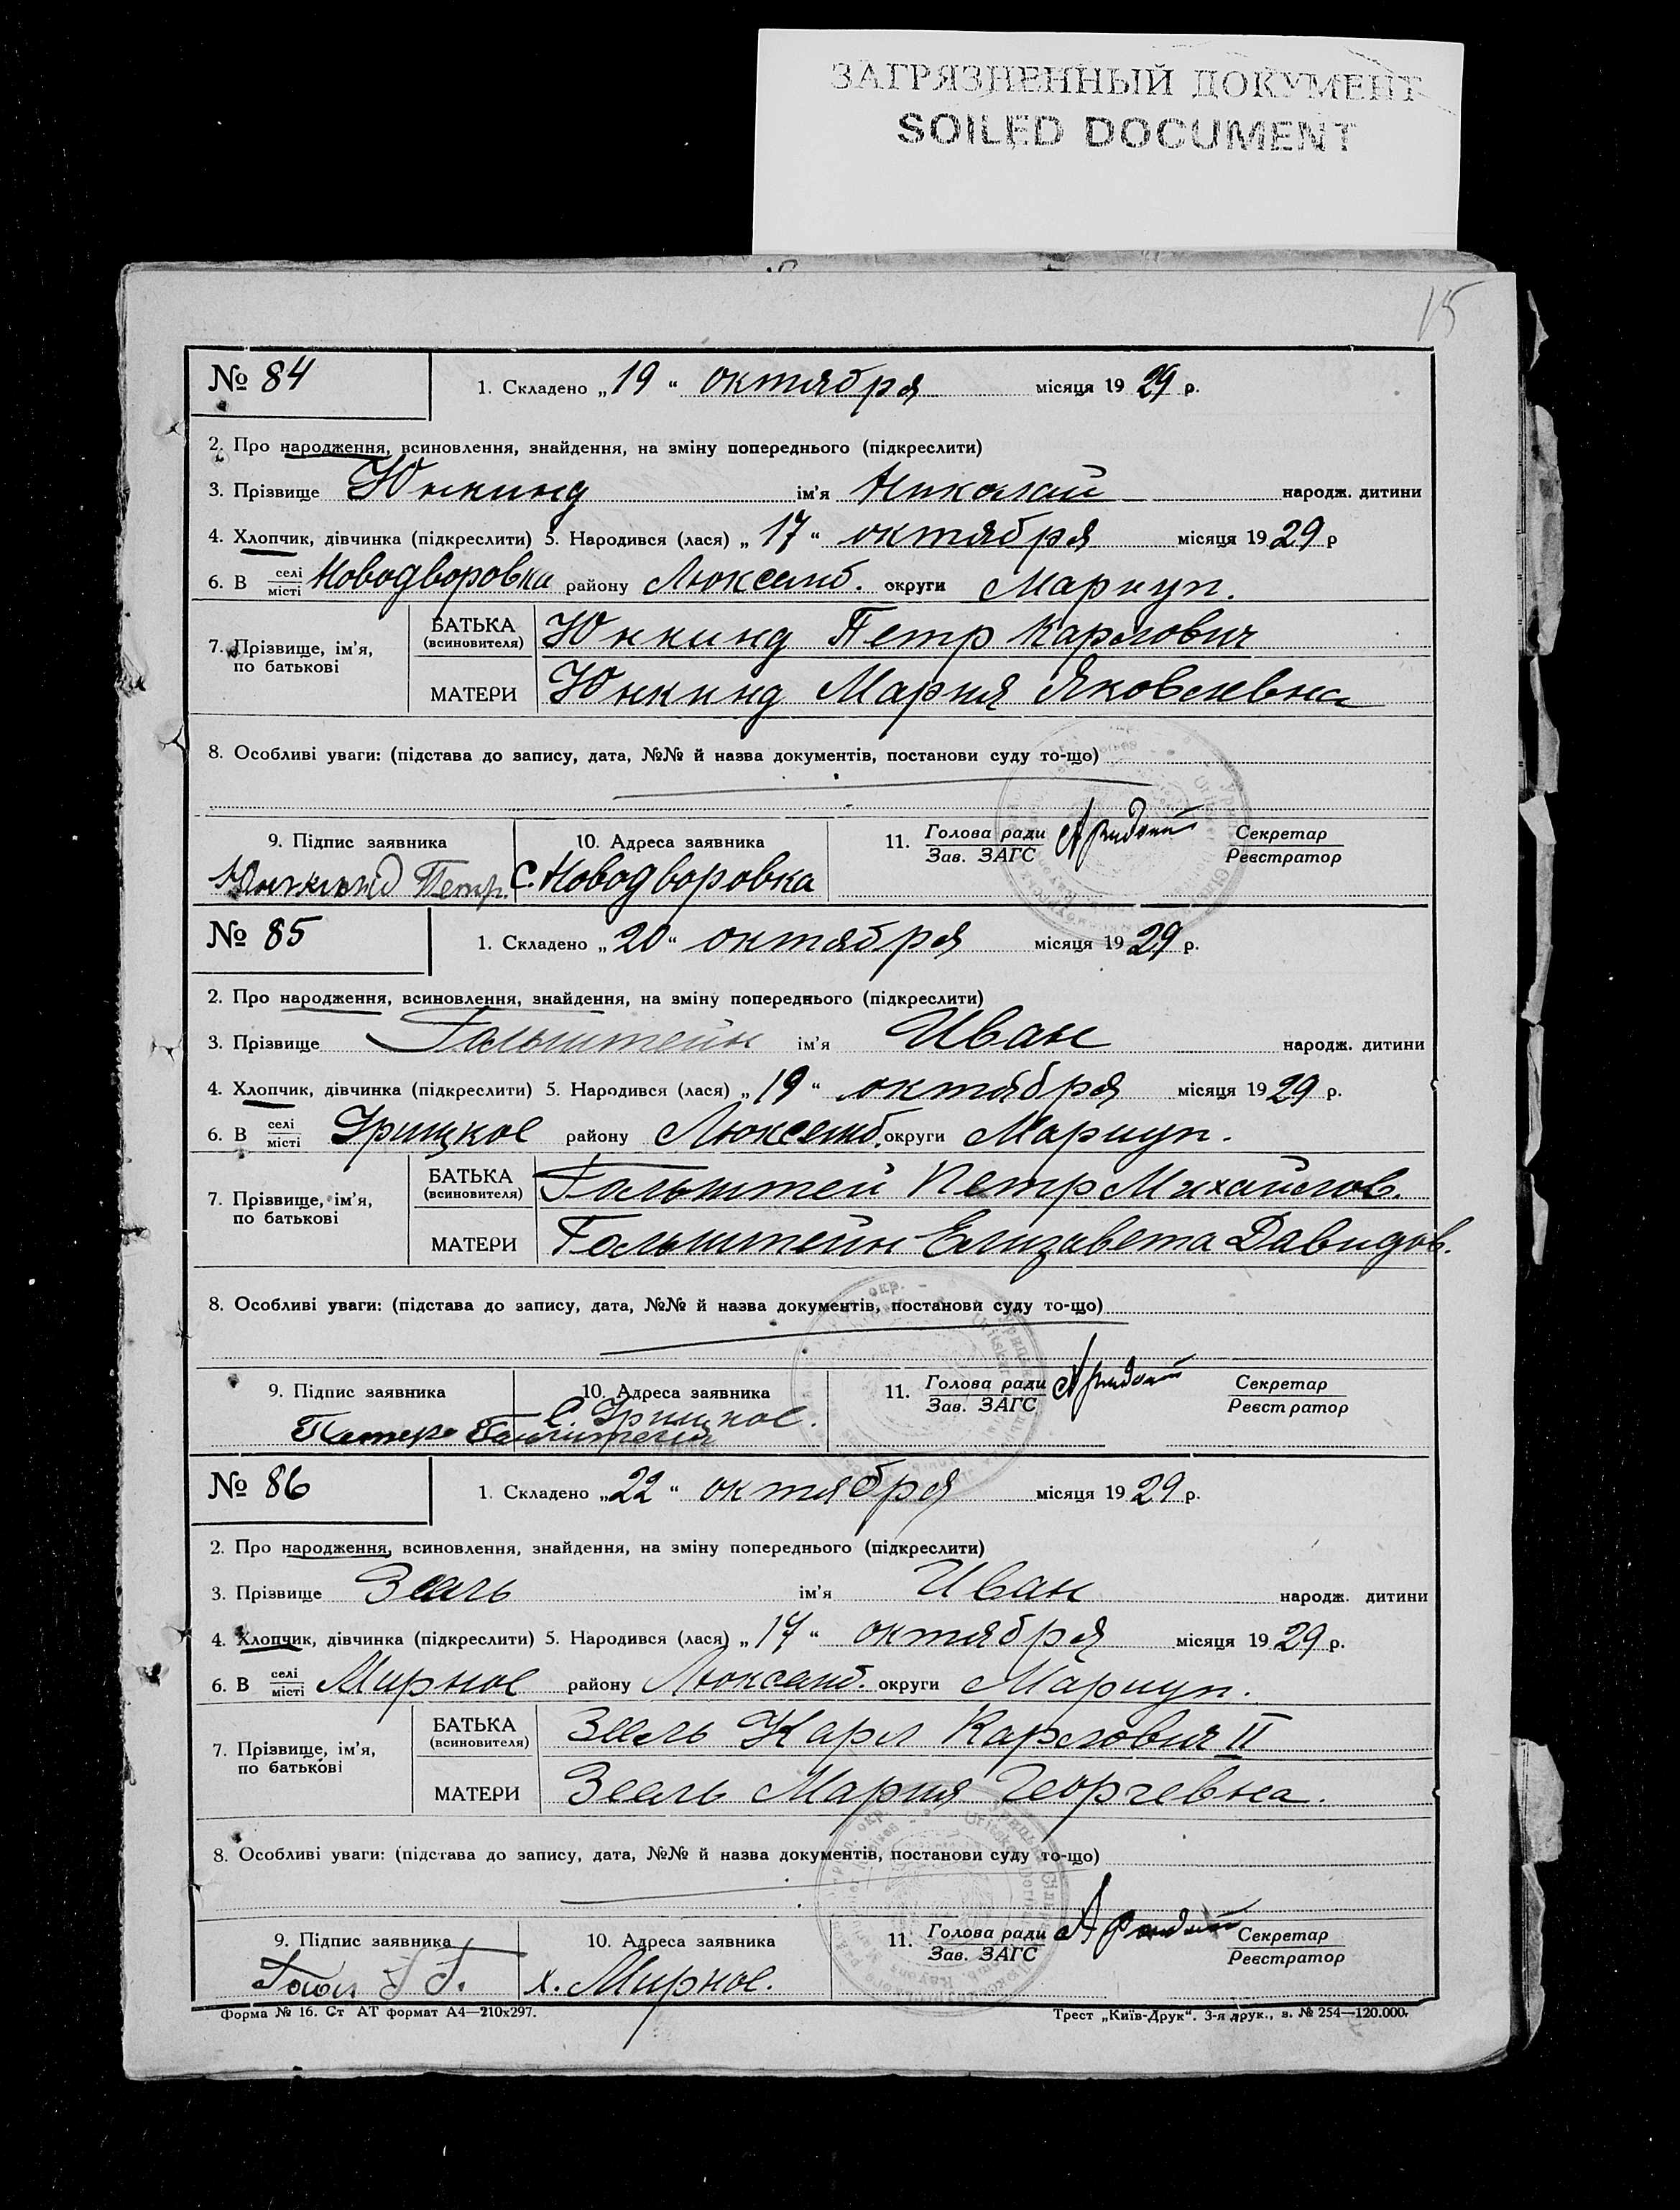 ЗАГРЯЗНЕННЫЙ ДОКУМЕНТ
SOILED DOCUMENT
15
№ 84 1. Складено „ 19 “ октября місяця 19 29 р.
2. Про народження, всиновлення, знайдення, на зміну попереднього (підкреслити)
3. Прізвище Юнкинд ім'я Николай народж. дитини
4. Хлопчик, дівчинка (підкреслити) 5. Народився (лася) „ 17 “ октября місяця 19 29 р
6. В селі місті Новодворовка району Люксемб. округи Мариуп.
7. Прізвище, ім'я, по батькові
БАТЬКА (всиновителя) Юнкинд Петр Карлович
МАТЕРИ Юнкинд Мария Яковлевна
8. Особливі уваги: (підстава до запису, дата, №№ й назва документів, постанови суду то-що)
9. Підпис заявника 10. Адреса заявника 11. Голова ради Зав. ЗАГС Секретар Реєстратор
Юнкинд Петр. С. Новодворовка
№ 85 1. Складено „ 20 “ октября місяця 19 29 р.
2. Про народження, всиновлення, знайдення, на зміну попереднього (підкреслити)
3. Прізвище Гальштейн ім'я Иван народж. дитини
4. Хлопчик, дівчинка (підкреслити) 5. Народився (лася) „ 19 “ октября місяця 19 29 р.
6. В селі місті Урицкое району Люксемб. округи Мариуп.
7. Прізвище, ім'я, по батькові
БАТЬКА (всиновителя) Гальштей Петр Михайлов.
МАТЕРИ Гальштейн Елизавета Давидов.
8. Особливі уваги: (підстава до запису, дата, №№ й назва документів, постанови суду то-що)
9. Підпис заявника 10. Адреса заявника 11. Голова ради Зав. ЗАГС Секретар Реєстратор
С. Урицкое.
Петер
№ 86 1. Складено „ 22 “ октября місяця 19 29 р.
2. Про народження, всиновлення, знайдення, на зміну попереднього (підкреслити)
3. Прізвище Зеель ім'я Иван народж. дитини
4. Хлопчик, дівчинка (підкреслити) 5. Народився (лася) „ 17 “ октября місяця 19 29 р.
6. В селі місті Мирное району Люксемб. округи Мариуп.
7. Прізвище, ім'я, по батькові
БАТЬКА (всиновителя) Зеель Карл Карлович II
МАТЕРИ Зеель Мария Георгевна.
8. Особливі уваги: (підстава до запису, дата, №№ й назва документів, постанови суду то-що)
9. Підпис заявника 10. Адреса заявника 11. Голова ради Зав. ЗАГС Секретар Реєстратор
х. Мирное.
Форма № 16. Ст АТ формат А4—210х297. Трест „Київ-Друк“. 3-я друк., з. № 254—120.000.